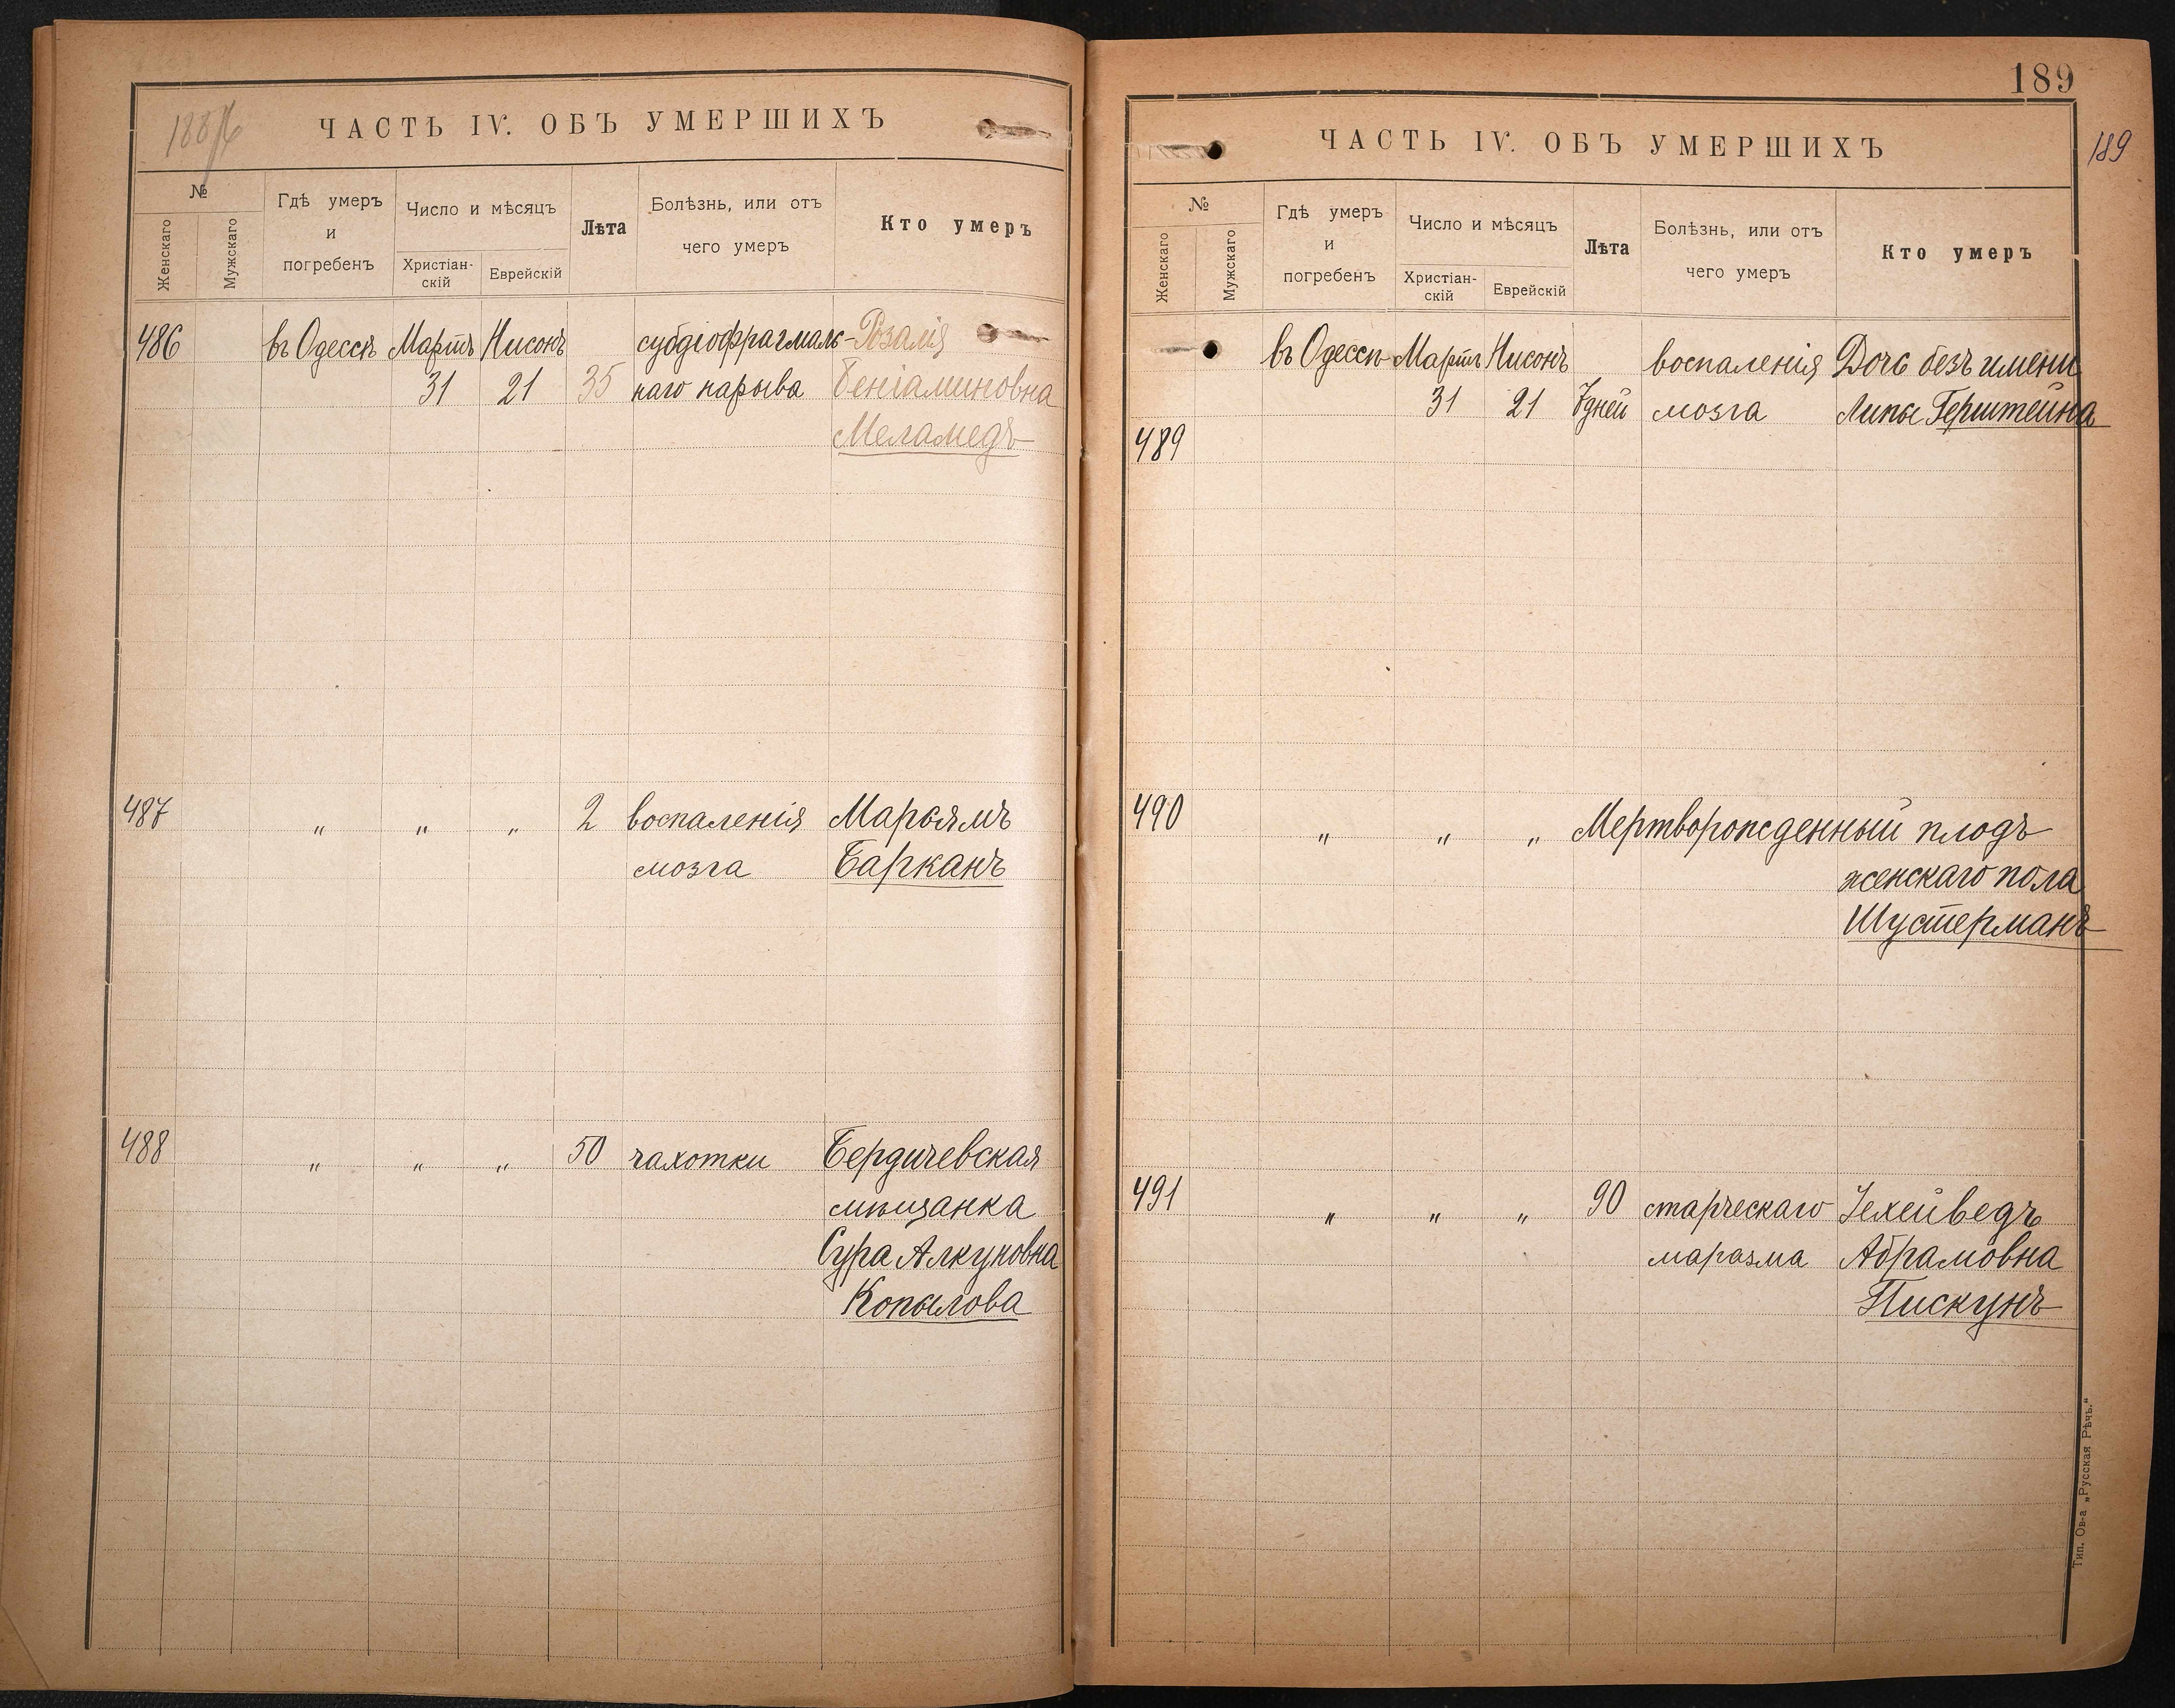 ЧАСТЬ IV. ОБЪ УМЕРШИХЪ
№
Женскаго
Мужскаго
Гдѣ умеръ
и
погребенъ
Число и мѣсяцъ
Христіан-
скій
Еврейскій
Лѣта
Болѣзнь, или отъ
чего умеръ
Кто умеръ
486 въ Одессѣ Мартъ Нисонъ субдіофрагмаль- Розалія
31 21 35 наго нарыва Беніаминовна
Меламедъ
487 " " " 2 воспаленія Марьямъ
мозга Барканъ
488 " " " 50 чахотки Бердичевская
мѣщанка
Сура Алкуновна
Копылова
189
189
ЧАСТЬ IV. ОБЪ УМЕРШИХЪ
№
Женскаго
Мужскаго
Гдѣ умеръ
и
погребенъ
Число и мѣсяцъ
Христіан-
скій
Еврейскій
Лѣта
Болѣзнь, или отъ
чего умеръ
Кто умеръ
въ Одессѣ Мартъ Нисонъ воспаленія Дочь безъ имени
31 21 7 дней мозга Липы Герштейна
489
490 " " " Мертворожденный плодъ
женскаго пола
Шустерманъ
491 " " " 90 старческаго Іехейведъ
маразма Абрамовна
Пискунъ
Тип. Ов-а „Русская Рѣчь."